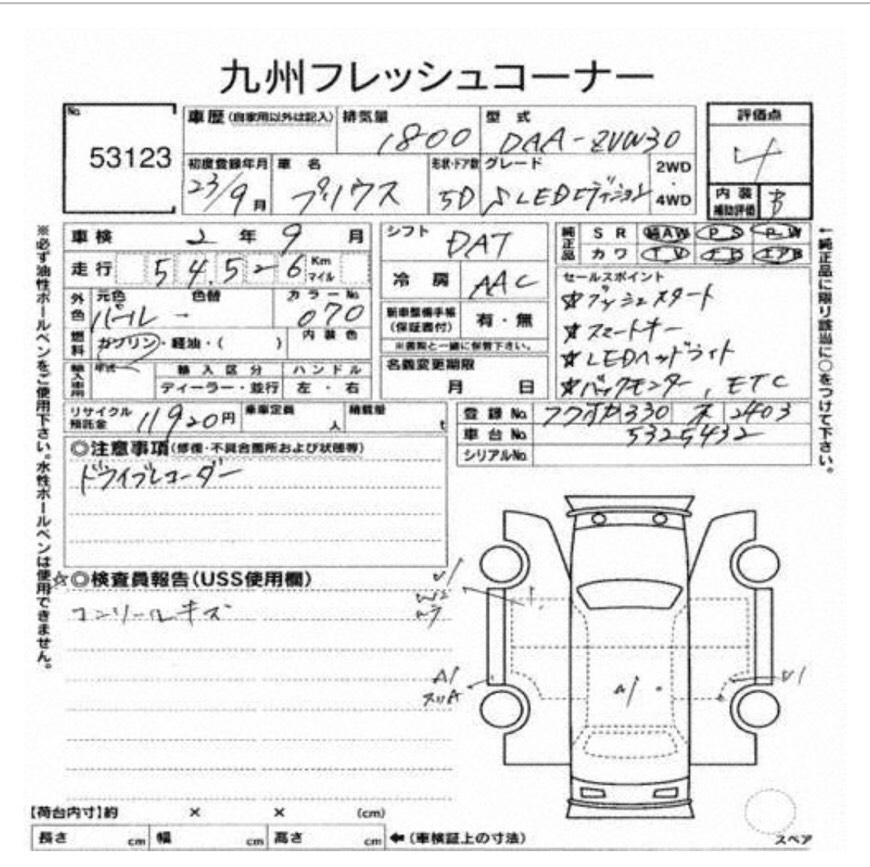 九州フレッシュコーナー
No. 53123
車歴(自家用以外は記入) 排気量 1800 型式 DAA-ZVW30 評価点 4
初度登録年月 23/9月 車名 プリウス 形状・ドア数 5D グレード S LEDエディション 2WD・4WD 内装補助評価 B
車検 2年9月 シフト DAT 純正品 SR 純AW PS PW
走行 54,526 Km マイル 冷房 AAC カワ TV ナビ エアB
外色 元色 パール 色替 - カラーNo. 070 内装色
新車整備手帳(保証書付) 有・無
※書類と一緒に保管下さい。
セールスポイント
☆プッシュスタート
☆スマートキー
☆LEDヘッドライト
☆バックモニター, ETC
燃料 ガソリン・軽油・( )
名義変更期限 月 日
輸入車用 年式 輸入区分 ディーラー・並行 ハンドル 左・右
リサイクル預託金 11920円 乗車定員 人 積載量 t
登録No. フクオカ330 2403
車台No. 5325432
シリアルNo.
◎注意事項(修復・不具合箇所および状態等)
ドライブレコーダー
☆◎検査員報告(USS使用欄)
コンソールキズ
U1
W2
A1
スリA
a1
U1
【荷台内寸】約 × × (cm)
長さ cm 幅 cm 高さ cm ←(車検証上の寸法)
スペア
※必ず油性ボールペンをご使用下さい。水性ボールペンは使用できません。
←純正品に限り該当に○をつけて下さい。